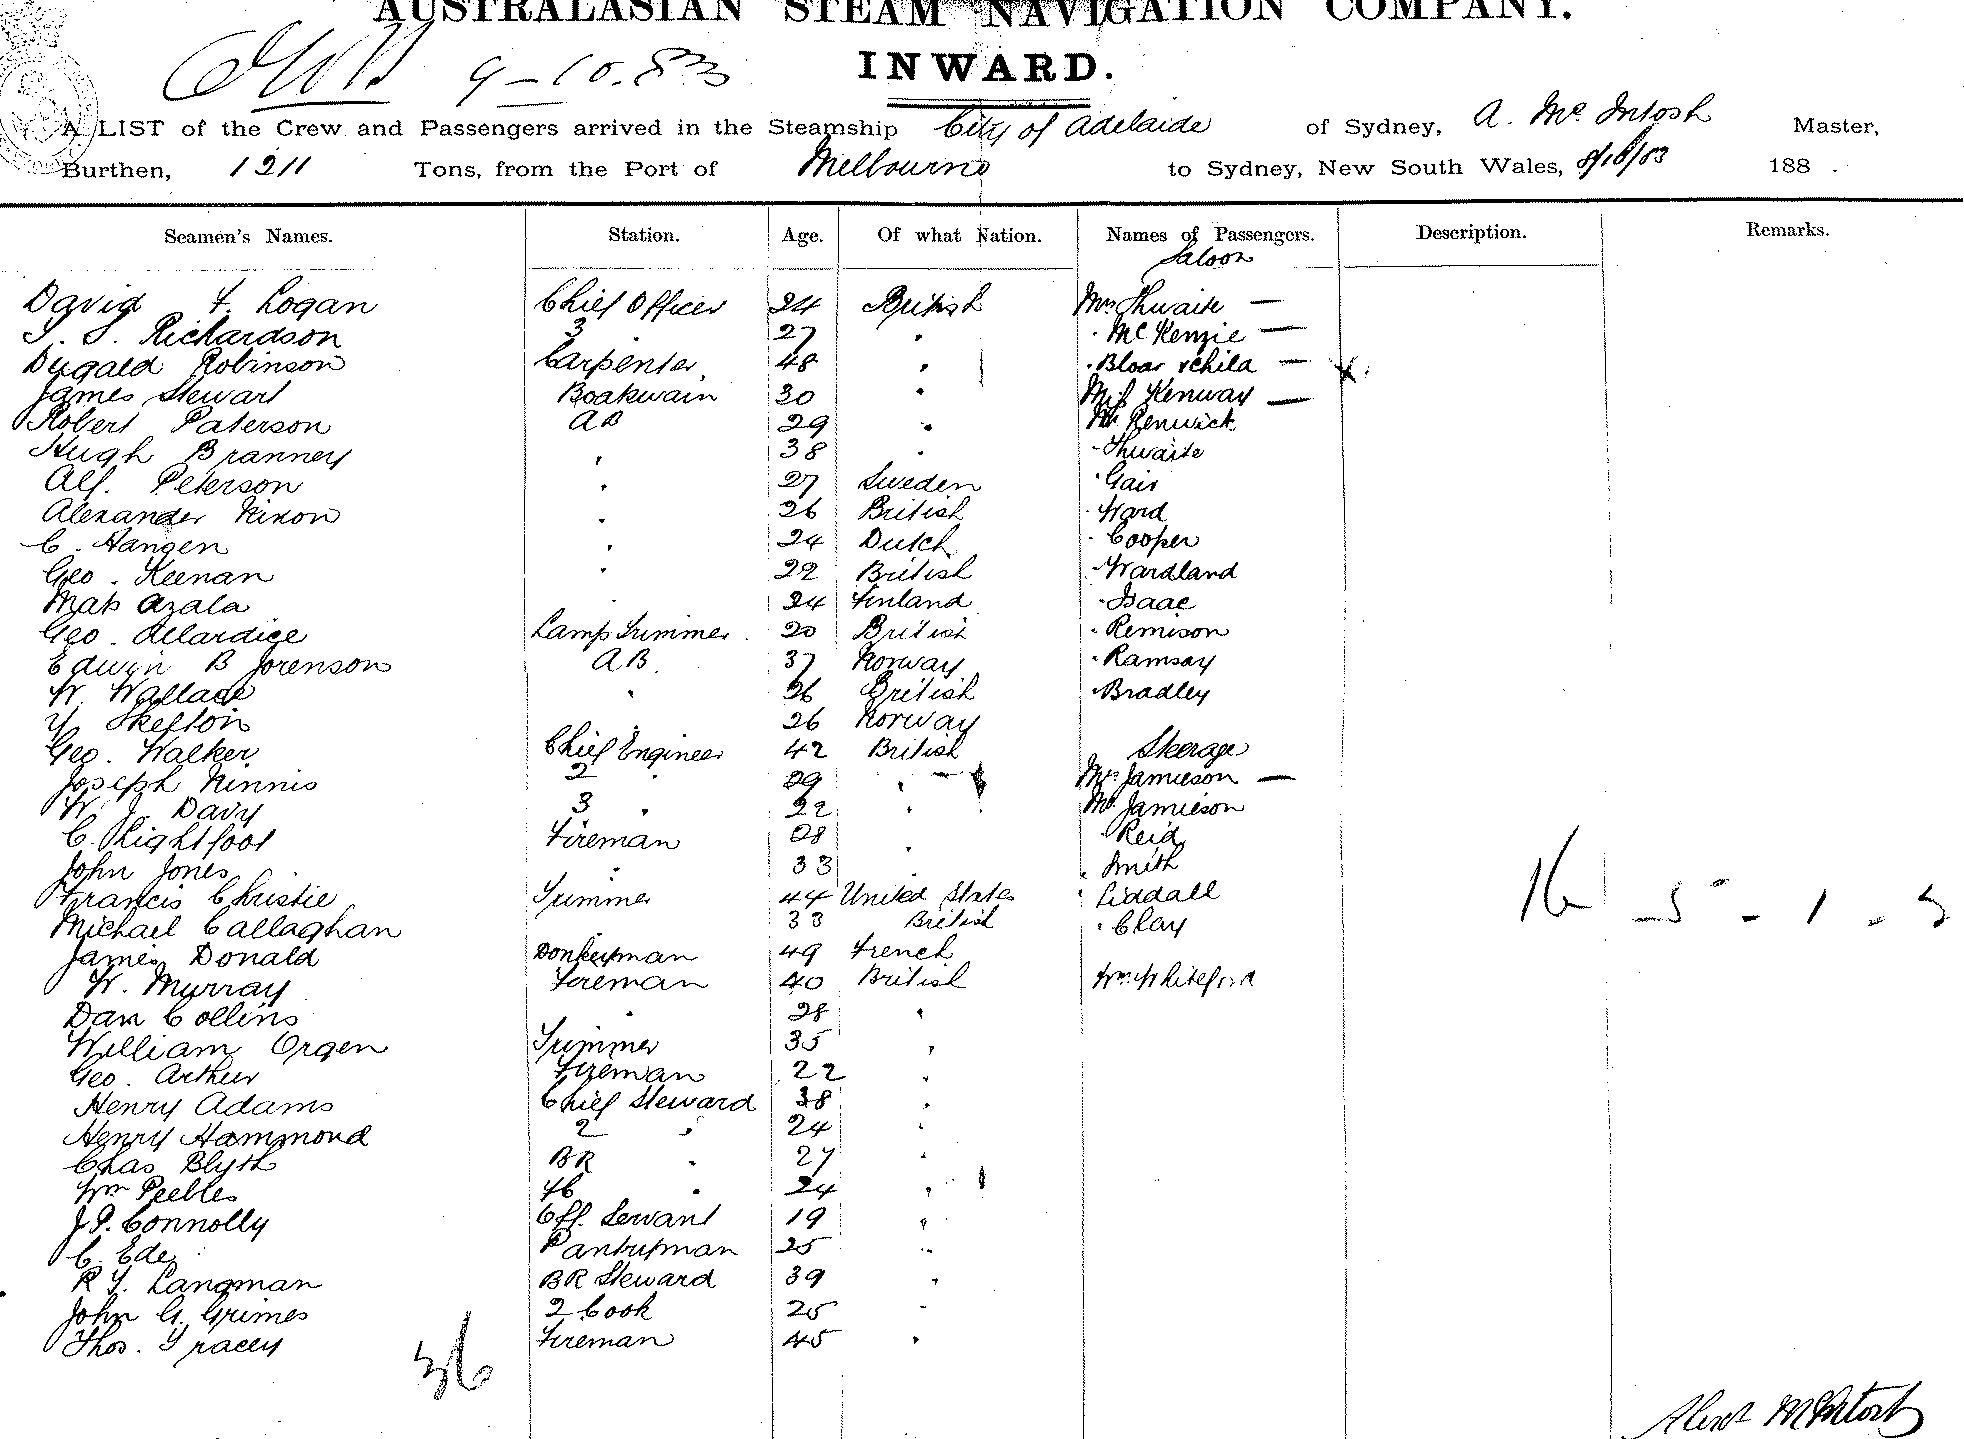 AUSTRALASIAN STEAM NAVIGATION COMPANY.
9-10.83
INWARD.
A LIST of the Crew and Passengers arrived in the Steamship City of Adelaide of Sydney, A. Mc Intosh Master,
Burthen, 1211 Tons, from the Port of Melbourne to Sydney, New South Wales, 8/10/83 188 .
Seamen's Names. Station. Age. Of what Nation. Names of Passengers. Description. Remarks.
Saloon
David F. Logan Chief Officer 24 British Mrs Thwaite —
Richardson 3 " 27 " " McKenzie —
Dugald Robinson Carpenter 48 " " Bloar & child —
James Stewart Boatswain 30 " Miss Kenway —
Robert Paterson AB 29 " Mr Renwick
Hugh Branney " 38 " " Thwaite
Alf. Peterson " 27 Sweden " Gair
Alexander Nixon " 26 British " Ward
C. Hangen " 24 Dutch " Cooper
Geo. Keenan " 22 British " Wardland
Mats Azala " 24 Finland " Isaac
Geo. Allardice Lamp Trimmer 20 British " Remison
Edwin B Jorenson AB 37 Norway " Ramsay
W. Wallace " 26 British " Bradley
Skefton " 26 Norway
Geo. Walker Chief Engineer 42 British Steerage
Joseph Ninnis 2 " 29 " Mrs Jamieson —
W. J. Davy 3 " 22 " Mr Jamieson
C. Lightfoot Fireman 28 " " Reid
John Jones " 33 " Smith
Francis Christie Trimmer 44 United States " Liddall
Michael Callaghan " 33 British " Clay
16 - 5 - 1 -
James Donald Donkeyman 49 French
W. Murray Fireman 40 British Wm Whiteford
Dan Collins " 28 "
William Orgen Trimmer 35 "
Geo. Arthur Fireman 22 "
Henry Adams Chief Steward 38 "
Henry Hammond 2 " 24 "
Chas Blyth BR " 27 "
Wm Peebles " 24 "
J.P. Connolly Off. Servant 19 "
C. Ede Pantryman 25 "
R T. Langman BR Steward 39 "
John G. Grimes 2 Cook 25 "
Thos. Tracey Fireman 45 "
36
Alexr McIntosh